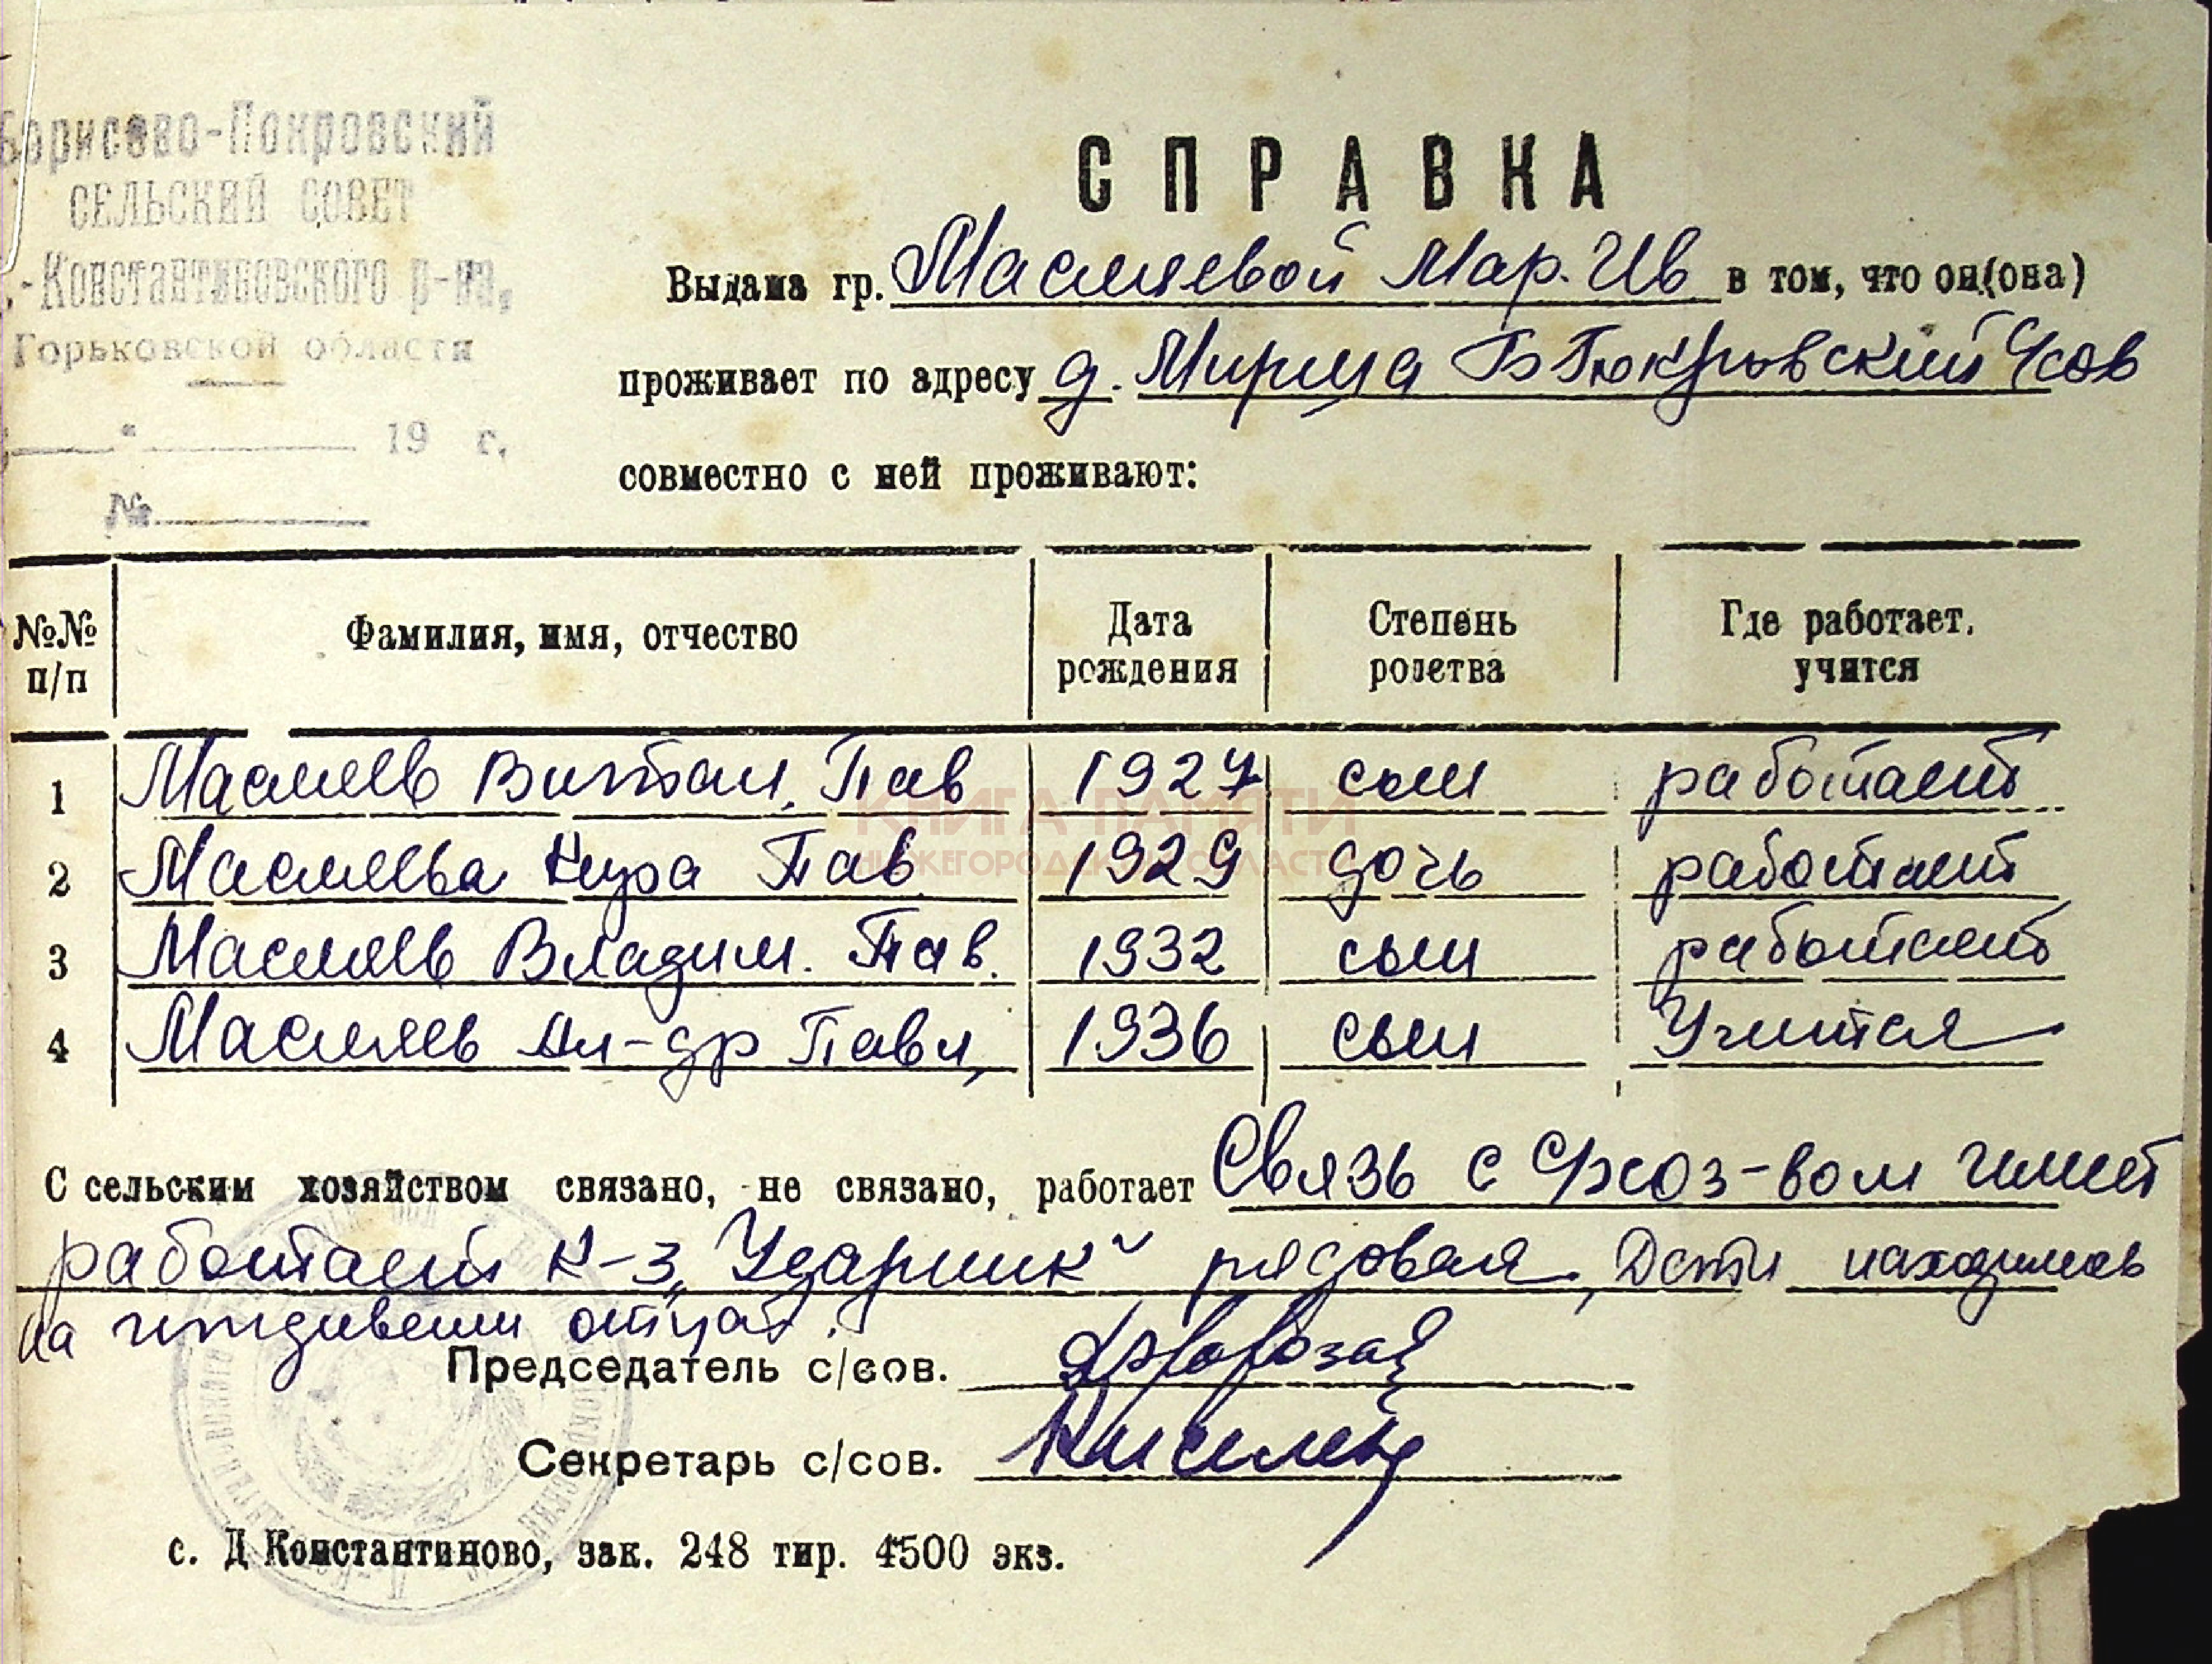 Борисово-Покровский
СЕЛЬСКИЙ СОВЕТ
.-Константиновского р-на,
Горьковской области
" 19 г.
№
СПРАВКА
Выдана гр. Масляевой Мар. Ив в том, что он (она)
проживает по адресу д. Мирша Б Покровский Ссов
совместно с ней проживают:
№№ п/п Фамилия, имя, отчество Дата рождения Степень родства Где работает, учится
1 Масляев Витал. Пав 1927 сын работает
2 Масляева Нура Пав 1929 дочь работает
3 Масляев Владим. Пав. 1932 сын работает
4 Масляев Ал-др Павл, 1936 сын Учится
С сельским хозяйством связано, не связано, работает Связь с с/хоз-вом имеет
работает к-з „Ударник" рядовая, Дети находились
на иждивении отца.
Председатель с/сов.
Секретарь с/сов.
с. Д Константиново, зак. 248 тир. 4500 экз.
КНИГА ПАМЯТИ
НИЖЕГОРОДСКОЙ ОБЛАСТИ